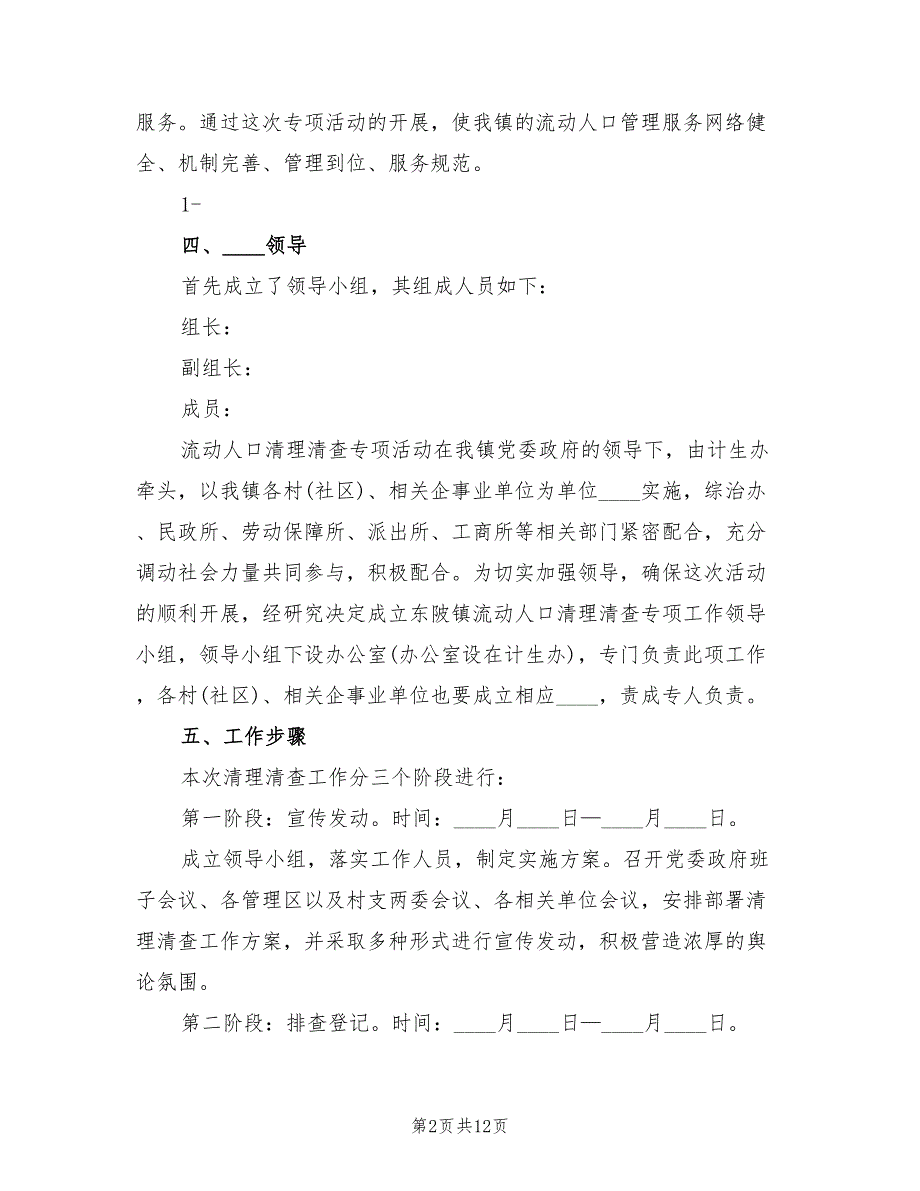 服务。通过这次专项活动的开展，使我镇的流动人口管理服务网络健
全、机制完善、管理到位、服务规范。
1-
四、____领导
首先成立了领导小组，其组成人员如下：
组长：
副组长：
成员：
流动人口清理清查专项活动在我镇党委政府的领导下，由计生办
牵头，以我镇各村(社区)、相关企事业单位为单位____实施，综治办
、民政所、劳动保障所、派出所、工商所等相关部门紧密配合，充分
调动社会力量共同参与，积极配合。为切实加强领导，确保这次活动
的顺利开展，经研究决定成立东陂镇流动人口清理清查专项工作领导
小组，领导小组下设办公室(办公室设在计生办)，专门负责此项工作
，各村(社区)、相关企事业单位也要成立相应____，责成专人负责。
五、工作步骤
本次清理清查工作分三个阶段进行：
第一阶段：宣传发动。时间：____月____日—____月____日。
成立领导小组，落实工作人员，制定实施方案。召开党委政府班
子会议、各管理区以及村支两委会议、各相关单位会议，安排部署清
理清查工作方案，并采取多种形式进行宣传发动，积极营造浓厚的舆
论氛围。
第二阶段：排查登记。时间：____月____日—____月____日。
第2页共12页